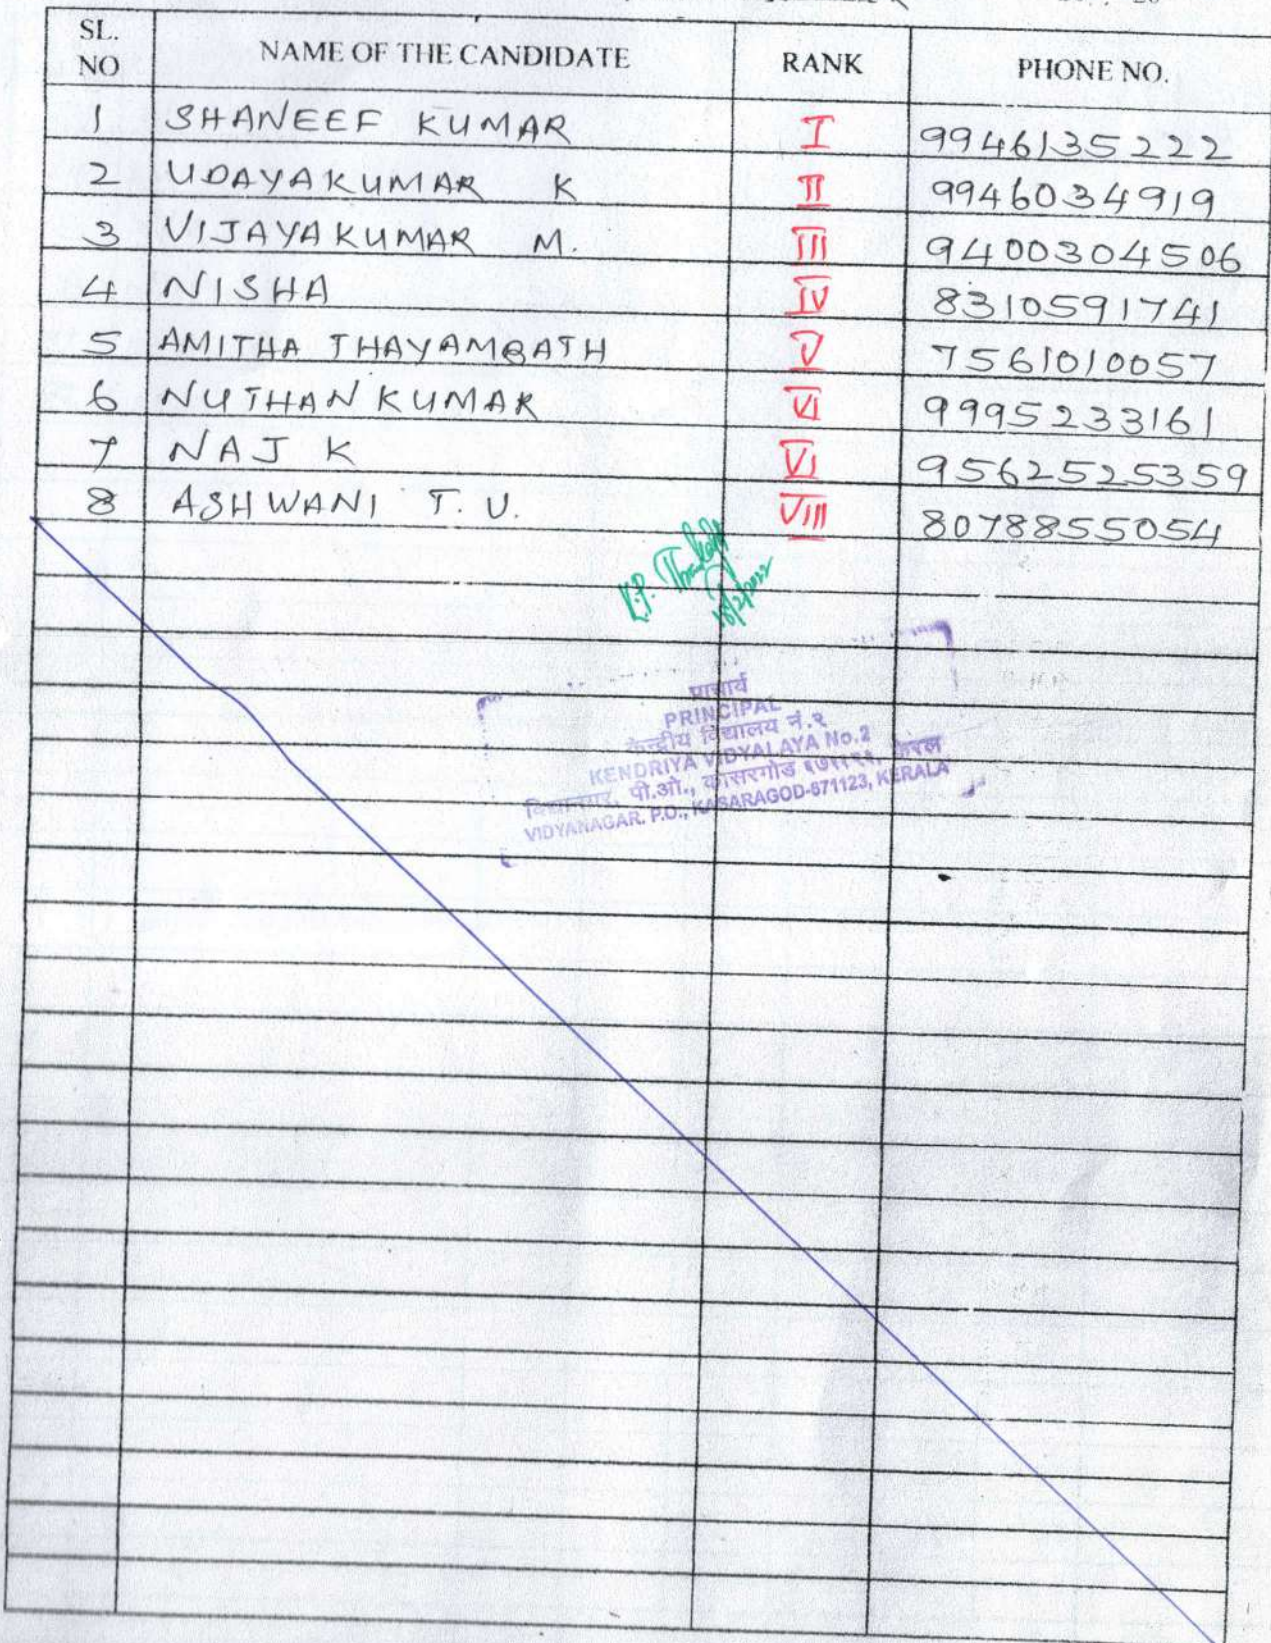 SL. NO NAME OF THE CANDIDATE RANK PHONE NO.
1 SHANEEF KUMAR I 9946135222
2 UDAYAKUMAR K II 9946034919
3 VIJAYAKUMAR M. III 9400304506
4 NISHA IV 8310591741
5 AMITHA THAYAMBATH V 7561010057
6 NUTHAN KUMAR VI 9995233161
7 NAJ K VI 9562525359
8 ASHWANI T. V. VIII 8078855054
K.P.
18/2/2022
प्राचार्य
PRINCIPAL
केन्द्रीय विद्यालय नं.२
KENDRIYA VIDYALAYA No.2
विद्यानगर, पी.ओ., कासरगोड केरल
VIDYANAGAR. P.O., KASARAGOD-671123, KERALA